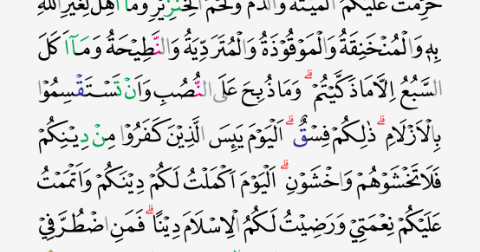 حُرِّمَتْ عَلَيْكُمُ الْمَيْتَةُ وَالدَّمُ وَلَحْمُ الْخِنْزِيْرِ وَمَاۤ اُهِلَّ لِغَيْرِ اللّٰهِ
بِهٖ وَالْمُنْخَنِقَةُ وَالْمَوْقُوْذَةُ وَالْمُتَرَدِّيَةُ وَالنَّطِيْحَةُ وَمَاۤ اَكَلَ
السَّبُعُ اِلَّا مَا ذَكَّيْتُمْۗ وَمَا ذُبِحَ عَلَى النُّصُبِ وَاَنْ تَسْتَقْسِمُوْا
بِالْاَزْلَامِۗ ذٰلِكُمْ فِسْقٌۗ اَلْيَوْمَ يَىِٕسَ الَّذِيْنَ كَفَرُوْا مِنْ دِيْنِكُمْ
فَلَا تَخْشَوْهُمْ وَاخْشَوْنِۗ اَلْيَوْمَ اَكْمَلْتُ لَكُمْ دِيْنَكُمْ وَاَتْمَمْتُ
عَلَيْكُمْ نِعْمَتِيْ وَرَضِيْتُ لَكُمُ الْاِسْلَامَ دِيْنًاۗ فَمَنِ اضْطُرَّ فِيْ